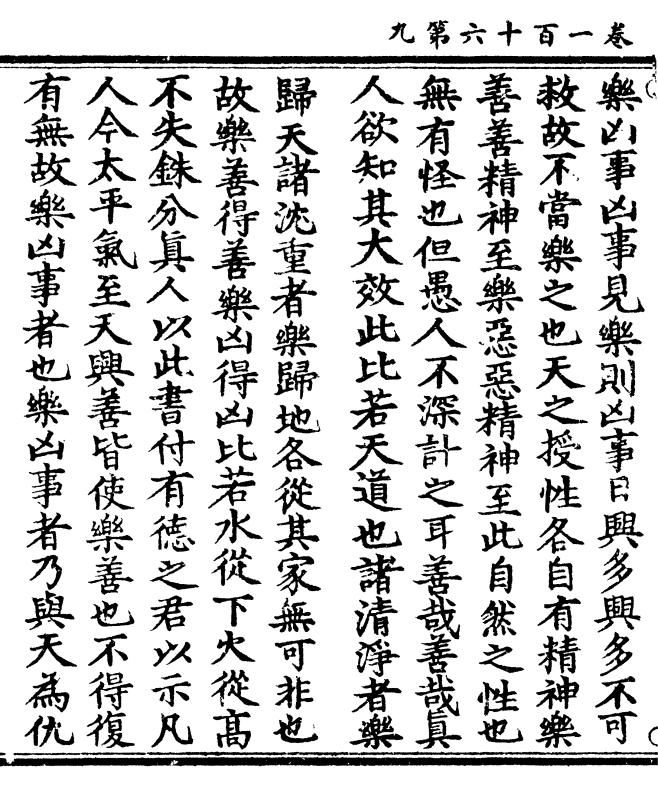 卷一百十六第九
樂凶事凶事見樂則凶事日興多興多不可
救故不當樂之也天之授性各自有精神樂
善善精神至樂惡惡精神至此自然之性也
無有怪也但愚人不深計之耳善哉善哉眞
人欲知其大效此比若天道也諸清淨者樂
歸天諸沈重者樂歸地各從其家無可非也
故樂善得善樂凶得凶比若水從下火從高
不失銖分眞人以此書付有德之君以示凡
人今太平氣至天興善皆使樂善也不得復
有無故樂凶事者也樂凶事者乃與天為仇